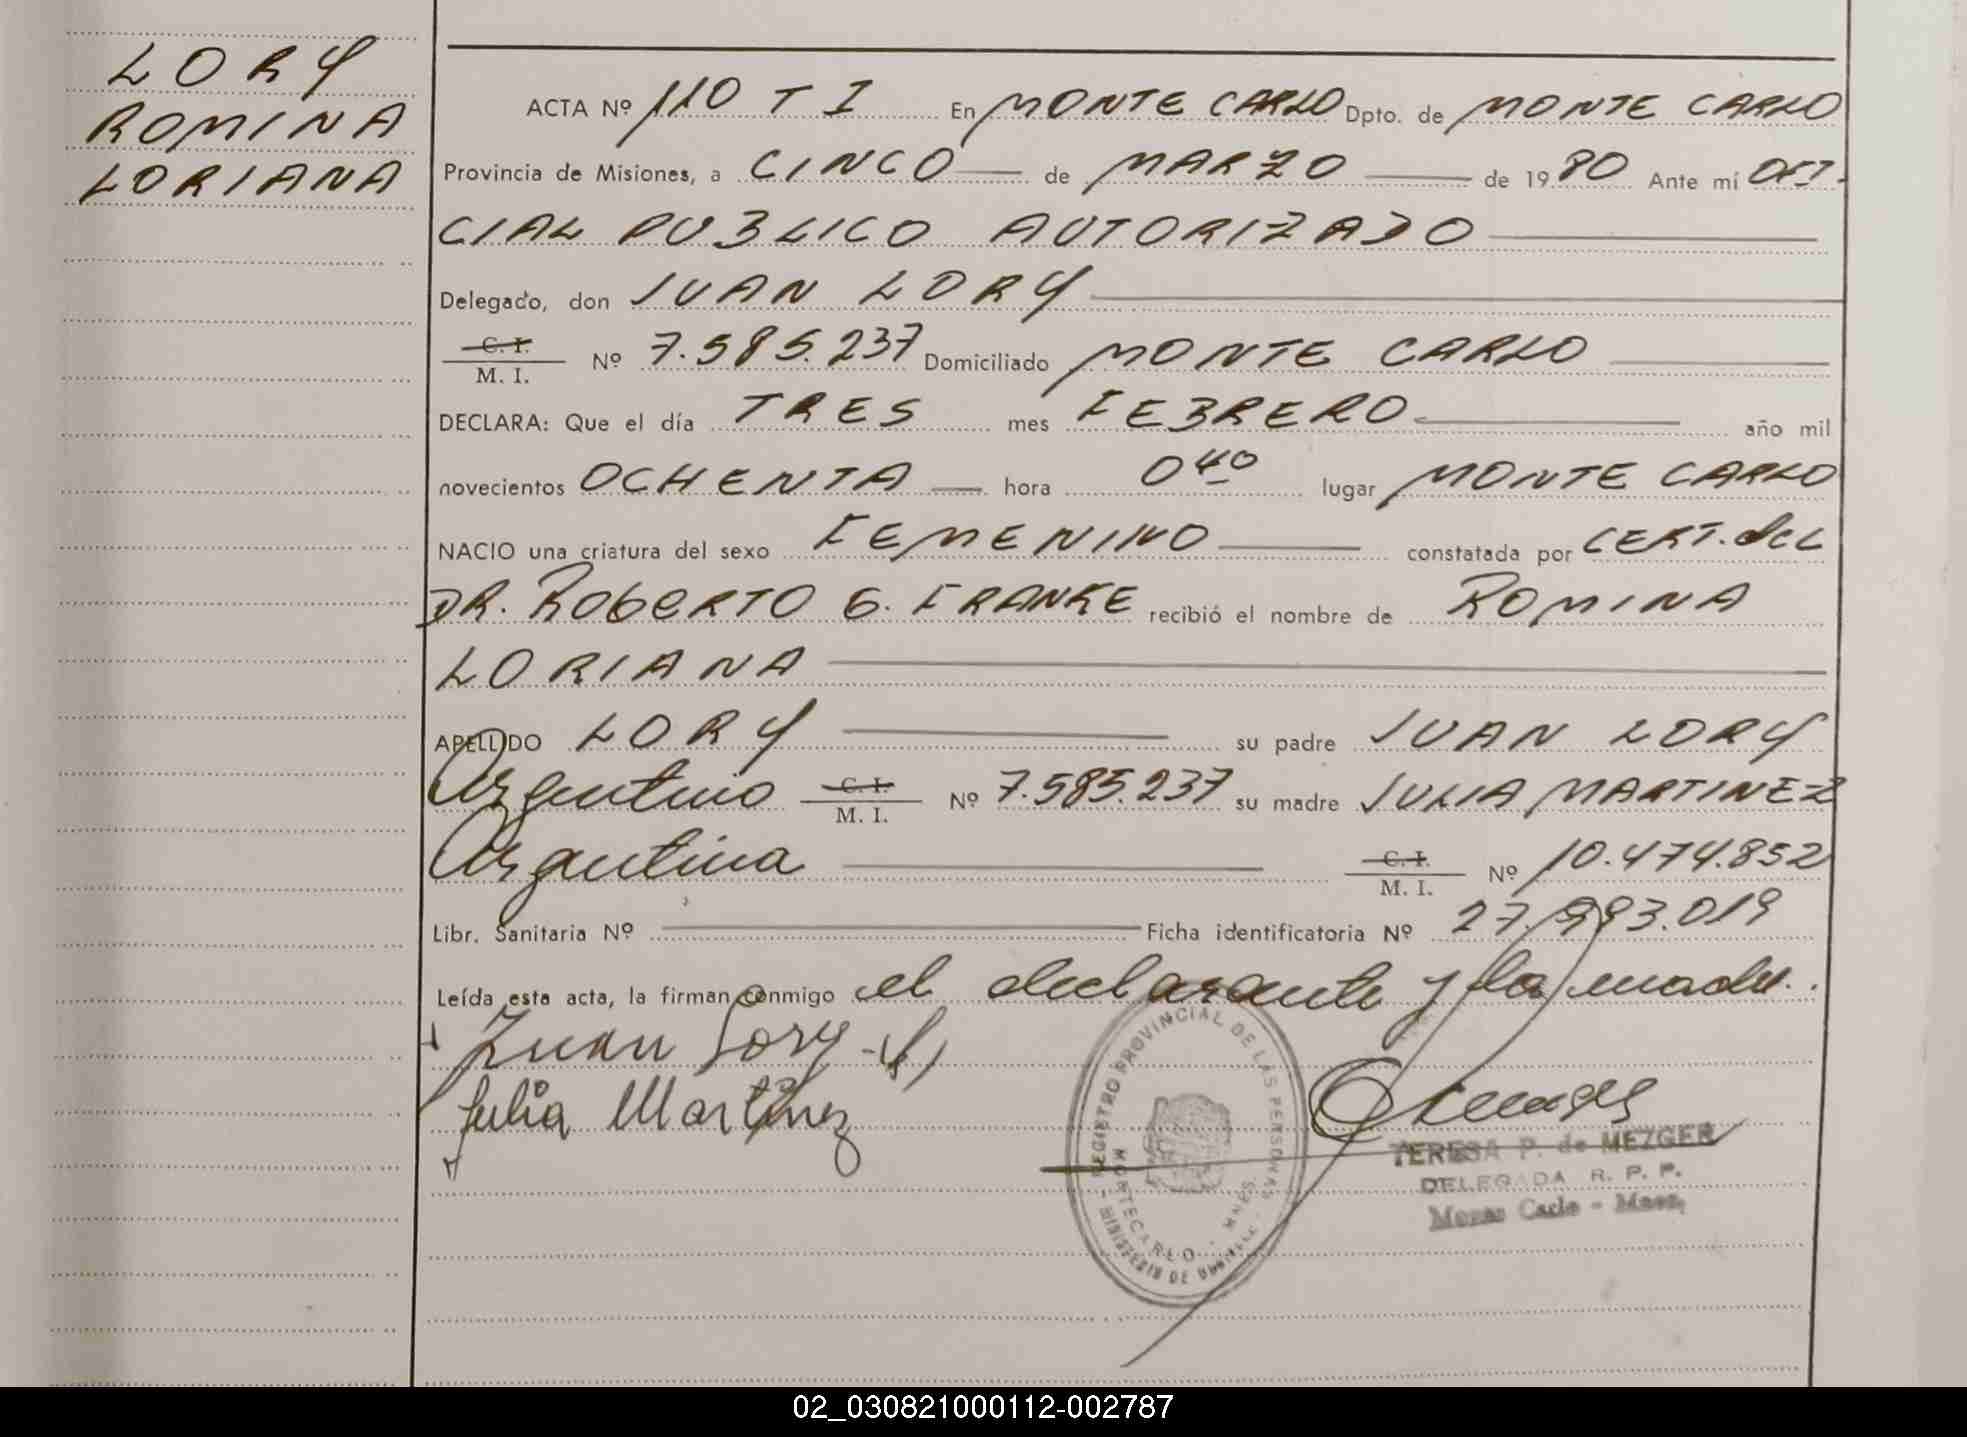 LORY
ROMINA
LORIANA
ACTA Nº 110 T I En MONTE CARLO Dpto. de MONTE CARLO
Provincia de Misiones, a CINCO de MARZO de 1980 Ante mí OFI-
CIAL PUBLICO AUTORIZADO
Delegado, don JUAN LORY
C. I.
M. I. Nº 7.585.237 Domiciliado MONTE CARLO
DECLARA: Que el día TRES mes FEBRERO año mil
novecientos OCHENTA hora 0 40 lugar MONTE CARLO
NACIO una criatura del sexo FEMENINO constatada por CERT. del
DR. ROBERTO G. FRANKE recibió el nombre de ROMINA
LORIANA
APELLIDO LORY su padre JUAN LORY
Argentino C. I.
M. I. Nº 7.585.237 su madre JULIA MARTINEZ
Argentina C. I.
M. I. Nº 10.474.852
Libr. Sanitaria Nº Ficha identificatoria Nº 27.993.019
Leída esta acta, la firman conmigo el declarante y la madre.
Juan Lory
Julia Martinez
REGISTRO PROVINCIAL DE LAS PERSONAS
MONTECARLO - MNES.
MINISTERIO DE
TERESA P. de MEZGER
DELEGADA R. P. P.
02_030821000112-002787